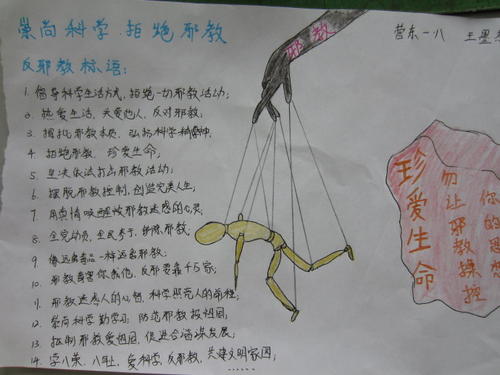 崇尚科学 拒绝邪教
反邪教标语：
1. 倡导科学生活方式，拒绝一切邪教活动；
2. 热爱生活，关爱他人，反对邪教；
3. 揭批邪教本质，弘扬科学精神
4. 拒绝邪教，珍爱生命；
5. 坚决依法打击邪教活动；
6. 摆脱邪教控制，创造完美人生；
7. 用真情唤醒被邪教迷惑的心灵；
8. 全党动员，全民参与，铲除邪教；
9. 像远离毒品一样远离邪教；
10. 邪教毒害你我他，反邪要靠千万家；
11. 邪教迷惑人的心智，科学照亮人的前程；
12. 崇尚科学勤学习，防范邪教报祖国；
13. 抵制邪教爱祖国，促进合谐谋发展；
14. 学八荣，八耻，爱科学，反邪教，共建文明家园；
……
邪教
营东一八 王墨
珍爱生命
勿让邪教操控
你的思想